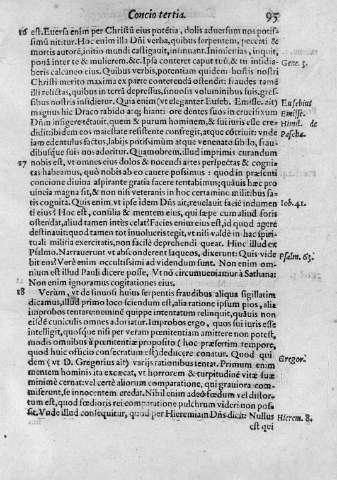 Concio tertia. 95
16 est. Euersa enim per Christū eius potētia, dolis aduersum nos potis-
simū nitur. Hoc enim illa Dñi verba, quibus serpentem, peccati &
mortis autorē, initio mundi castigauit, insinuant. Inimicitias, inquit,
ponā inter te & mulierem, &c. Ipsa conteret caput tuū, & tu insidia- Gene. 3.
beris calcaneo eius. Quibus verbis, potentiam quidem hostis nostri
Christi merito maxima ex parte conterendā ostendit: fraudes tamē
illi relictas, quibus in terra depressus, sinuosis voluminibus suis, gres-
sibus nostris insidietur. Quia enim (vt eleganter Euseb. Emisse. ait) Eusebius
magnus hic Draco rabido atq; hianti ore dentes suos in crucifixum Emisse.
Dñm insigere tētauit, quem & purum hominem, & sui iuris esse cre- Homil. de
didit ibidem eos maiestate resistente confregit, atque cōtriuit: vnde Pascha.
iam edentulus factus, labijs potissimum atque venenato sibilo, frau-
dibusque suis nos adoritur. Quamobrem, illud imprimis curandum
17 nobis est, vt omnes eius dolos & nocendi artes perspectas & cogni-
tas habeamus, quò nobis ab eo cauere possimus: quod in præsenti
concione diuina aspirante gratia facere tentabimus; quāuis hæc pro
uincia magna sit, & non nisi veteranis in hoc certamine militibus sa-
tis cognita. Quis enim, vt ipse idem Dñs ait, reuelauit faciē indumen Iob. 41.
ti eius? Hoc est, consilia & mentem eius, qui sæpe cum aliud foris
ostendat, aliud tamen intus celat? Facies enim eius est, id quod agere
destinauit: quod tamen tot inuolucris tegit, vt nisi valde in hac spiri-
tuali militia exercitatis, non facilè deprehendi queat. Hinc illud ex
Psalmo. Narrauerunt vt absconderent laqueos, dixerunt: Quis vide Psalm. 63.
bit eos? Verè enim occultissimi ad videndum sunt. Non enim om-
nium est illud Pauli dicere posse, Vt nō circumueniamur à Sathana:
Non enim ignoramus cogitationes eius.
18 Verùm, vt de sinuosi huius serpentis fraudibus aliqua sigillatim
dicamus, illud primo loco sciendum est, alia ratione ipsum pios, alia
improbos tentare: nemine quippe intentatum relinquit, quāuis non
eisdē cuniculis omnes adoriatur. Improbos ergo, quos sui iuris esse
intelligit, quosque nisi per veram pœnitentiam amittere non potest,
modis omnibus à pœnitentiæ proposito (hoc præsertim tempore,
quod huic officio consecratum est) deducere conatur. Quod qui
dem (vt D. Gregorius ait) varijs rationibus tentat. Primum enim Gregor.
mentem hominis ita excæcat, vt horrorem & turpitudinē vitæ suæ
minimè cernat: vel certè aliorum comparatione, qui grauiora com-
miserunt, se innocentem credat. Nihil enim adeò fœdum vel distor-
tum est, quod fœdioris rei comparatione pulchrum videri non pos-
sit. Vnde illud consequitur, quod per Hieremiam Dñs dicit: Nullus Hierem. 8.
est qui